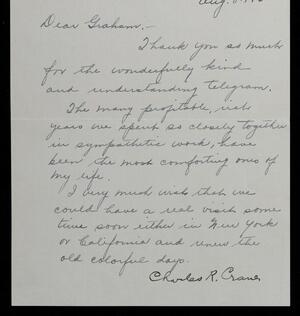 Aug.
Dear Graham:-
Thank you so much
for the wonderfully kind
and understanding telegram.
The many profitable, rich
years we spent so closely together
in sympathetic work, have
been the most comforting ones of
my life.
I very much wish that we
could have a real visit some
time soon either in New York
or California and renew the
old colorful days.
Charles R. Crane